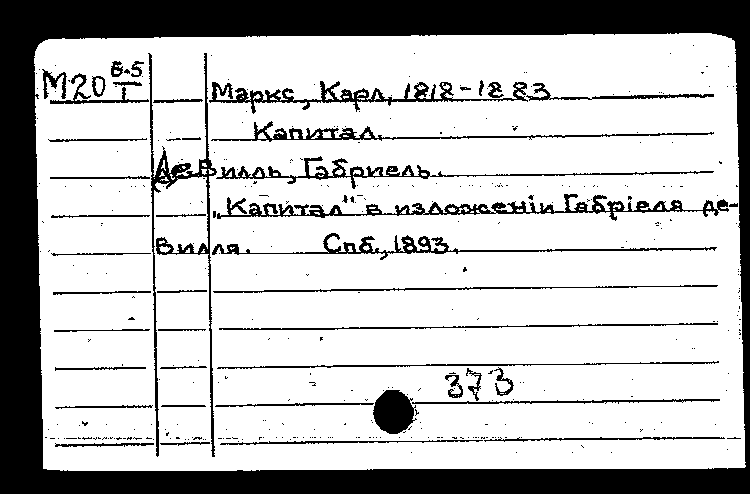 М20 6.5/1 Маркс, Карл, 1818-1883
Капитал.
Де Вилль, Габриель.
„Капитал" в изложеніи Габріеля де-
Вилля. Спб., 1893.
373